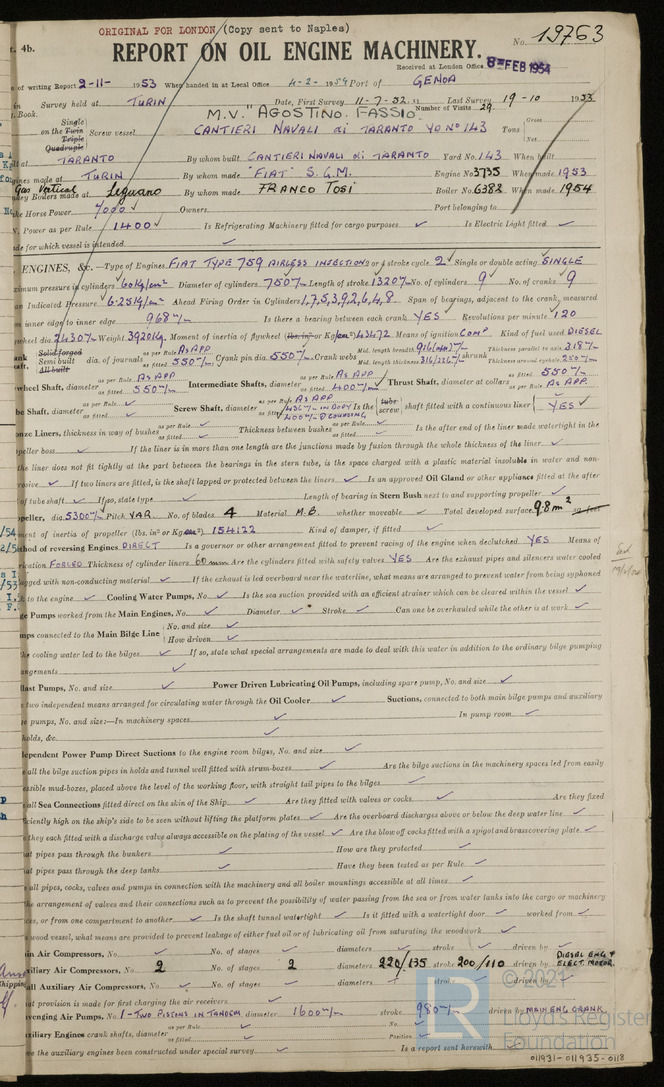 ORIGINAL FOR LONDON (Copy sent to Naples)
t. 4b.
REPORT ON OIL ENGINE MACHINERY.
No. 19763
Received at London Office 8 FEB 1954
of writing Report 2-11- 1953 When handed in at Local Office 4-2-1954 Port of GENOA
in Survey held at TURIN Date, First Survey 11-7-52 Last Survey 19-10 1953
Book. Number of Visits 29
M.V. "AGOSTINO FASSIO"
on the Single Twin Triple Quadruple Screw vessel CANTIERI NAVALI di TARANTO YD No 143 Tons Gross Net
at TARANTO By whom built CANTIERI NAVALI di TARANTO Yard No. 143 When built
gines made at TURIN By whom made "FIAT" S.G.M. Engine No 3735 When made 1953
Gas Vertical Boilers made at Legnano By whom made FRANCO TOSI Boiler No. 6382 When made 1954
ke Horse Power 7000 Owners Port belonging to
. Power as per Rule 1400 Is Refrigerating Machinery fitted for cargo purposes Is Electric Light fitted
de for which vessel is intended
ENGINES, &c.—Type of Engines FIAT TYPE 759 AIRLESS INJECTION 2 or 4 stroke cycle 2 Single or double acting SINGLE
ximum pressure in cylinders 60 kg/cm² Diameter of cylinders 750 m/m Length of stroke 1320 m/m No. of cylinders 9 No. of cranks 9
an Indicated Pressure 6.25 kg/cm² Ahead Firing Order in Cylinders 1,7,5,3,9,2,6,4,8 Span of bearings, adjacent to the crank, measured
m inner edge to inner edge 968 m/m Is there a bearing between each crank YES Revolutions per minute 120
wheel dia. 2430 m/m Weight 3920 Kg. Moment of inertia of flywheel (lbs. in² or Kg. cm²) Means of ignition COMP Kind of fuel used DIESEL
ank aft, Solid forged Semi built All built dia. of journals as per Rule AS APP as fitted 550 m/m Crank pin dia. 550 m/m Crank webs Mid. length breadth Mid. length thickness shrunk Thickness parallel to axis 318 m/m Thickness around eyehole
wheel Shaft, diameter as per Rule AS APP as fitted 550 m/m Intermediate Shafts, diameter as per Rule AS APP as fitted 400 m/m Thrust Shaft, diameter at collars as fitted 550 m/m as per Rule AS APP
be Shaft, diameter as per Rule as fitted Screw Shaft, diameter as per Rule AS APP as fitted 436 m/m IN BODY 400 m/m @ COUPLING Is the tube screw shaft fitted with a continuous liner YES
onze Liners, thickness in way of bushes as per Rule as fitted Thickness between bushes as per Rule as fitted Is the after end of the liner made watertight in the
peller boss If the liner is in more than one length are the junctions made by fusion through the whole thickness of the liner
the liner does not fit tightly at the part between the bearings in the stern tube, is the space charged with a plastic material insoluble in water and non-
rosive If two liners are fitted, is the shaft lapped or protected between the liners Is an approved Oil Gland or other appliance fitted at the after
of tube shaft If so, state type Length of bearing in Stern Bush next to and supporting propeller
peller, dia. 5300 m/m Pitch VAR. No. of blades 4 Material M.B. whether moveable Total developed surface 9.8 m² sq. feet
ment of inertia of propeller (lbs. in² or Kg. cm²) 154122 Kind of damper, if fitted
thod of reversing Engines DIRECT Is a governor or other arrangement fitted to prevent racing of the engine when declutched YES Means of
rication FORCED Thickness of cylinder liners 60 m/m Are the cylinders fitted with safety valves YES Are the exhaust pipes and silencers water cooled
agged with non-conducting material If the exhaust is led overboard near the waterline, what means are arranged to prevent water from being syphoned
k to the engine Cooling Water Pumps, No. Is the sea suction provided with an efficient strainer which can be cleared within the vessel
ge Pumps worked from the Main Engines, No. Diameter Stroke Can one be overhauled while the other is at work
mps connected to the Main Bilge Line No. and size How driven
he cooling water led to the bilges If so, state what special arrangements are made to deal with this water in addition to the ordinary bilge pumping
angements
last Pumps, No. and size Power Driven Lubricating Oil Pumps, including spare pump, No. and size
two independent means arranged for circulating water through the Oil Cooler Suctions, connected to both main bilge pumps and auxiliary
e pumps, No. and size:—In machinery spaces In pump room
holds, &c.
ependent Power Pump Direct Suctions to the engine room bilges, No. and size
all the bilge suction pipes in holds and tunnel well fitted with strum-boxes Are the bilge suctions in the machinery spaces led from easily
essible mud-boxes, placed above the level of the working floor, with straight tail pipes to the bilges
all Sea Connections fitted direct on the skin of the Ship Are they fitted with valves or cocks Are they fixed
ficiently high on the ship's side to be seen without lifting the platform plates Are the overboard discharges above or below the deep water line
they each fitted with a discharge valve always accessible on the plating of the vessel Are the blow off cocks fitted with a spigot and brass covering plate
at pipes pass through the bunkers How are they protected
at pipes pass through the deep tanks Have they been tested as per Rule
all pipes, cocks, valves and pumps in connection with the machinery and all boiler mountings accessible at all times
he arrangement of valves and their connections such as to prevent the possibility of water passing from the sea or from water tanks into the cargo or machinery
ces, or from one compartment to another Is the shaft tunnel watertight Is it fitted with a watertight door worked from
wood vessel, what means are provided to prevent leakage of either fuel oil or of lubricating oil from saturating the woodwork
in Air Compressors, No. No. of stages diameters stroke driven by
xiliary Air Compressors, No. 2 No. of stages 2 diameters 220/135 stroke 200/110 driven by DIESEL ENG & ELECT. MOTOR.
all Auxiliary Air Compressors, No. No. of stages diameters stroke driven by
at provision is made for first charging the air receivers
venging Air Pumps, No. 1 - TWO PISTONS IN TANDEM diameter 1600 m/m stroke 980 m/m driven by MAIN ENG. CRANK
uxiliary Engines crank shafts, diameter as per Rule as fitted No. Position
ve the auxiliary engines been constructed under special survey Is a report sent herewith
© 2021
LR
Lloyd's Register
Foundation
011931-011935-0118